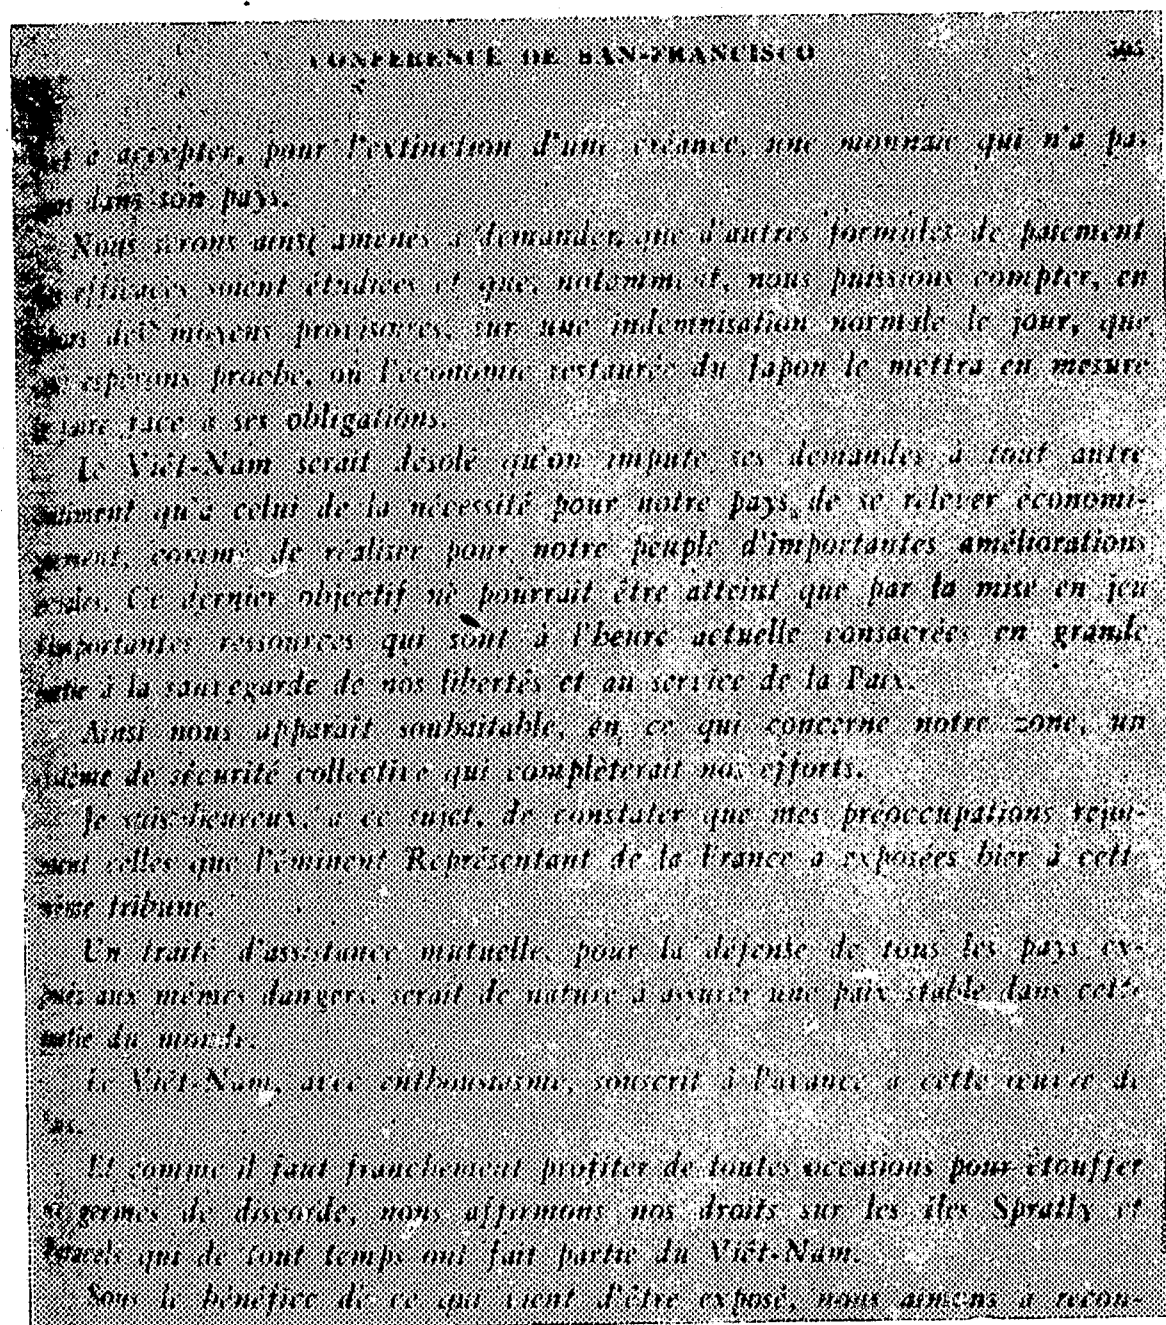 CONFERENCE DE SAN-FRANCISCO 505
à accepter, pour l'extinction d'une créance, une monnaie qui n'a pas
dans son pays.
Nous serons ainsi amenés à demander que d'autres formules de paiement
efficaces soient étudiées et que, notamment, nous puissions compter, en
des moyens provisoires, sur une indemnisation normale le jour, que
espérons proche, où l'économie restaurée du Japon le mettra en mesure
faire face à ses obligations.
Le Viêt-Nam serait désolé qu'on impute ses demandes à tout autre
qu'à celui de la nécessité pour notre pays de se relever économi-
comme de réaliser pour notre peuple d'importantes améliorations
Ce dernier objectif ne pourrait être atteint que par la mise en jeu
importantes ressources qui sont à l'heure actuelle consacrées en grande
à la sauvegarde de nos libertés et au service de la Paix.
Ainsi nous apparaît souhaitable, en ce qui concerne notre zone, un
de sécurité collective qui complèterait nos efforts.
Je suis heureux, à ce sujet, de constater que mes préoccupations rejoi-
celles que l'éminent Représentant de la France a exposées hier à cette
même tribune.
Un traité d'assistance mutuelle, pour la défense de tous les pays ex-
aux mêmes dangers, serait de nature à assurer une paix stable dans cette
du monde.
Le Viêt-Nam, avec enthousiasme, souscrit à l'avance à cette œuvre de
Et comme il faut franchement profiter de toutes occasions pour étouffer
germes de discorde, nous affirmons nos droits sur les îles Spratly et
Paracels qui de tout temps ont fait partie du Viêt-Nam.
Sous le bénéfice de ce qui vient d'être exposé, nous aimons à recon-